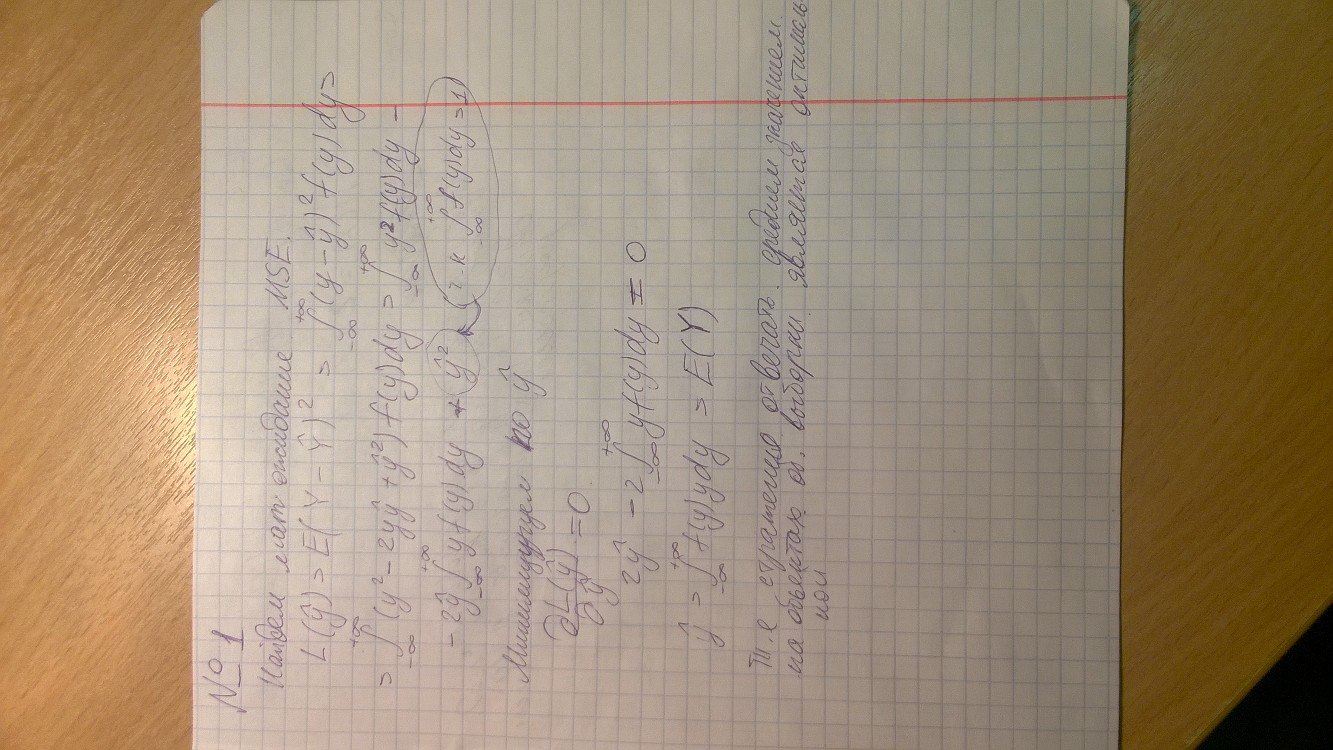 № 1
Найдем мат ожидание MSE.
L(ŷ) = E(Y - Ŷ)² = ∫_{-∞}^{+∞} (y - ŷ)² f(y) dy =
= ∫_{-∞}^{+∞} (y² - 2yŷ + ŷ²) f(y) dy = ∫_{-∞}^{+∞} y² f(y) dy -
- 2ŷ ∫_{-∞}^{+∞} y f(y) dy + ŷ² (т.к ∫_{-∞}^{+∞} f(y) dy = 1)
Минимизируем по ŷ
∂L(ŷ)/∂ŷ = 0
2ŷ - 2 ∫_{-∞}^{+∞} y f(y) dy = 0
ŷ = ∫_{-∞}^{+∞} f(y) y dy = E(Y)
Т.е стратегия отвечать средним значением
на объектах об. выборки является оптималь
ной